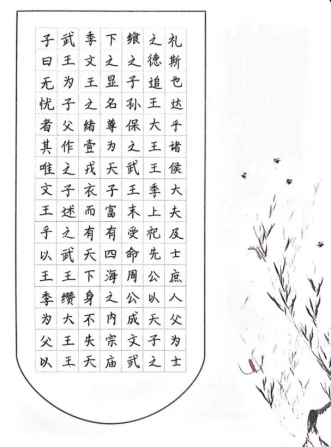 子曰无忧者其唯文王乎以王季为父以
武王为子父作之子述之武王缵大王王
季文王之绪壹戎衣而有天下身不失天
下之显名尊为天子富有四海之内宗庙
飨之子孙保之武王末受命周公成文武
之德追王大王王季上祀先公以天子之
礼斯也达乎诸侯大夫及士庶人父为士